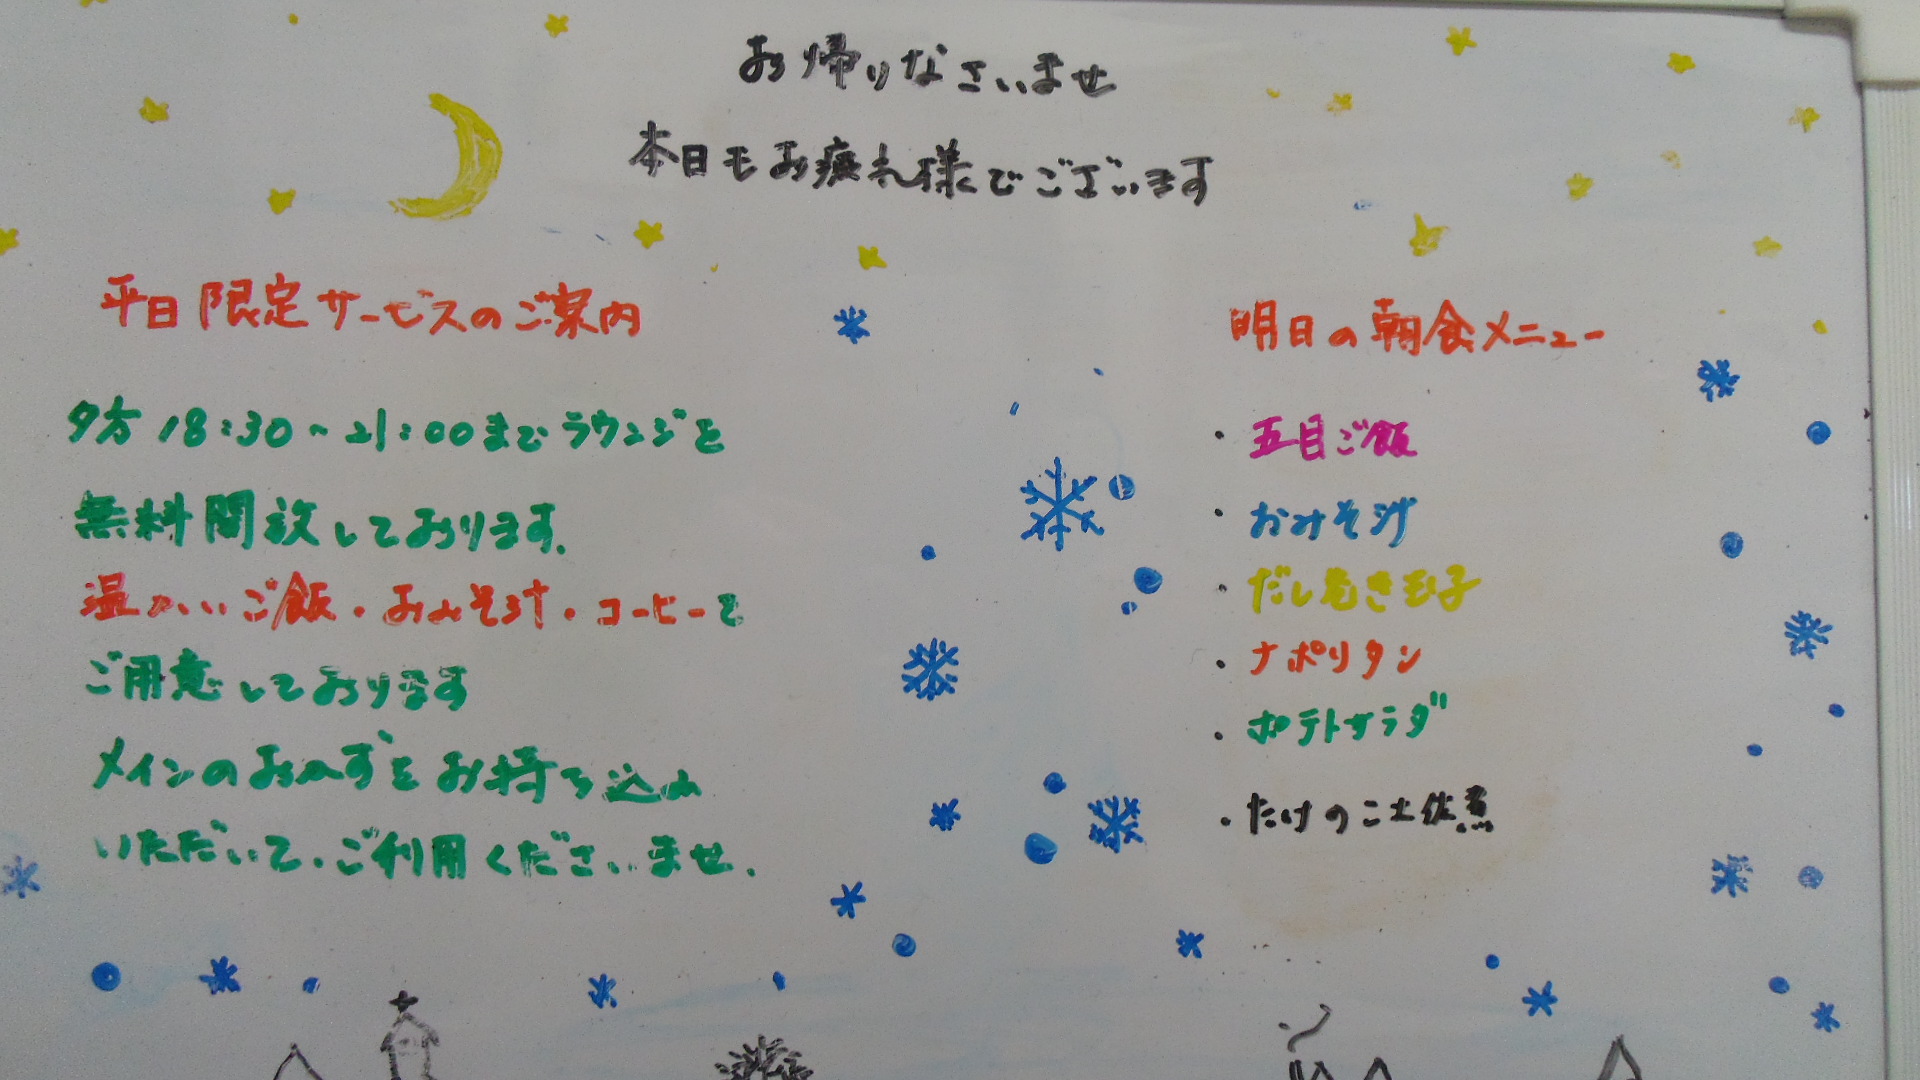 お帰りなさいませ
本日もお疲れ様でございます
平日限定サービスのご案内
夕方18:30~21:00までラウンジを
無料開放しております。
温かいご飯・おみそ汁・コーヒーを
ご用意しております
メインのおかずをお持ち込み
いただいて、ご利用くださいませ。
明日の朝食メニュー
・五目ご飯
・おみそ汁
・だし巻き玉子
・ナポリタン
・ポテトサラダ
・たけのこ土佐煮